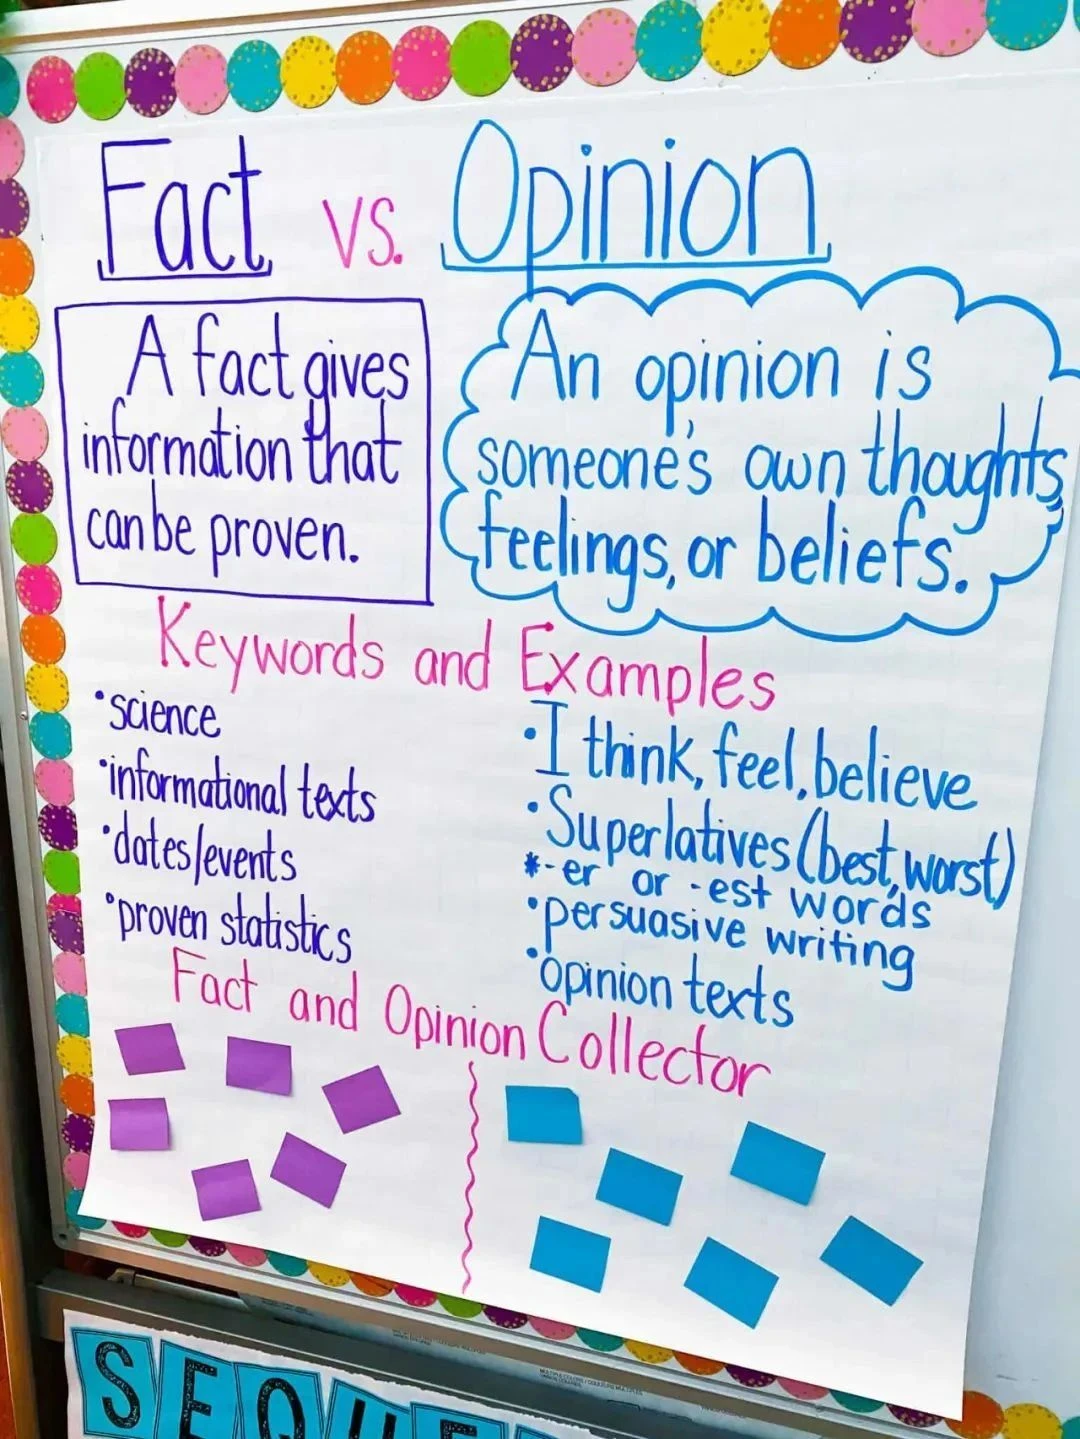 Fact vs. Opinion
A fact gives
information that
can be proven.
An opinion is
someone's own thoughts,
feelings, or beliefs.
Keywords and Examples
•science
•informational texts
•dates/events
•proven statistics
•I think, feel, believe
•Superlatives (best, worst)
*-er or -est words
•persuasive writing
•opinion texts
Fact and Opinion Collector